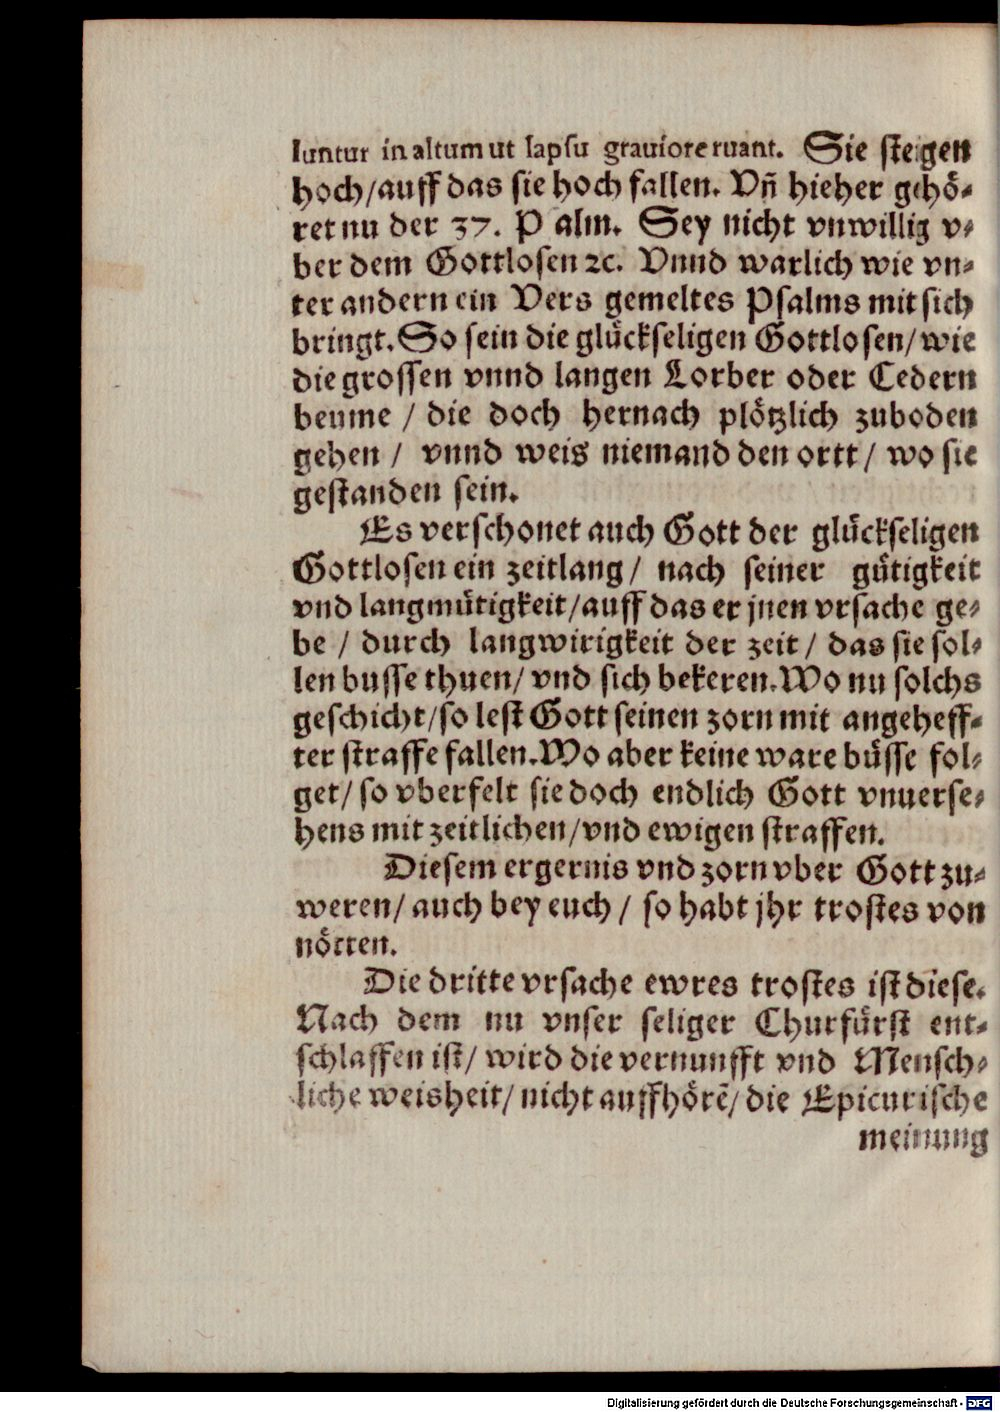 luntur in altum ut lapsu grauiore ruant. Sie steigen
hoch/auff das sie hoch fallen. Vñ hieher gehö⸗
ret nu der 37. P alm. Sey nicht vnwillig v⸗
ber dem Gottlosen ꝛc. Vnnd warlich wie vn⸗
ter andern ein Vers gemeltes Psalms mit sich
bringt. So sein die glückseligen Gottlosen/wie
die grossen vnnd langen Lorber oder Cedern
beume / die doch hernach plötzlich zuboden
gehen / vnnd weis niemand den ortt / wo sie
gestanden sein.
Es verschonet auch Gott der glückseligen
Gottlosen ein zeitlang/ nach seiner gütigkeit
vnd langmütigkeit/auff das er jnen vrsache ge⸗
be / durch langwirigkeit der zeit / das sie sol⸗
len busse thuen/ vnd sich bekeren. Wo nu solchs
geschicht/so lest Gott seinen zorn mit angeheff⸗
ter straffe fallen. Wo aber keine ware büsse fol⸗
get/ so vberfelt sie doch endlich Gott vnuerse⸗
hens mit zeitlichen/vnd ewigen straffen.
Diesem ergernis vnd zorn vber Gott zu⸗
weren/ auch bey euch / so habt jhr trostes von
nötten.
Die dritte vrsache ewres trostes ist diese.
Nach dem nu vnser seliger Churfürst ent⸗
schlaffen ist/ wird die vernunfft vnd Mensch⸗
liche weisheit/ nicht auffhörẽ/ die Epicurische
meinung
Digitalisierung gefördert durch die Deutsche Forschungsgemeinschaft - DFG